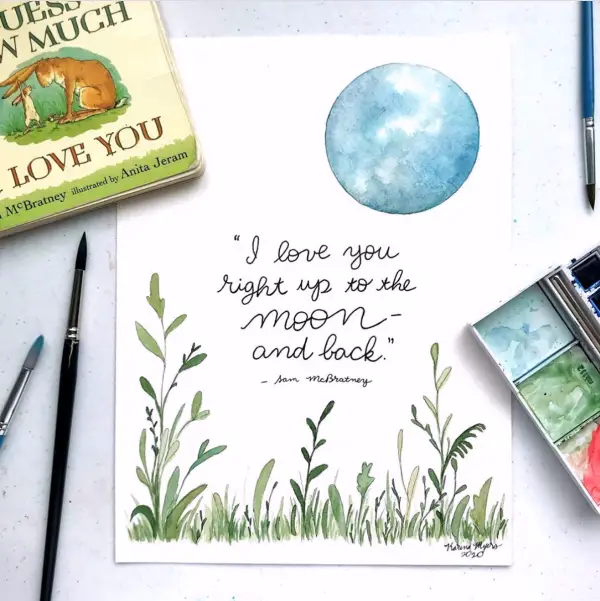 GUESS
HOW MUCH
I LOVE YOU
McBratney illustrated by Anita Jeram
"I love you
right up to the
moon-
and back."
- Sam McBratney
Karena Myers
2020